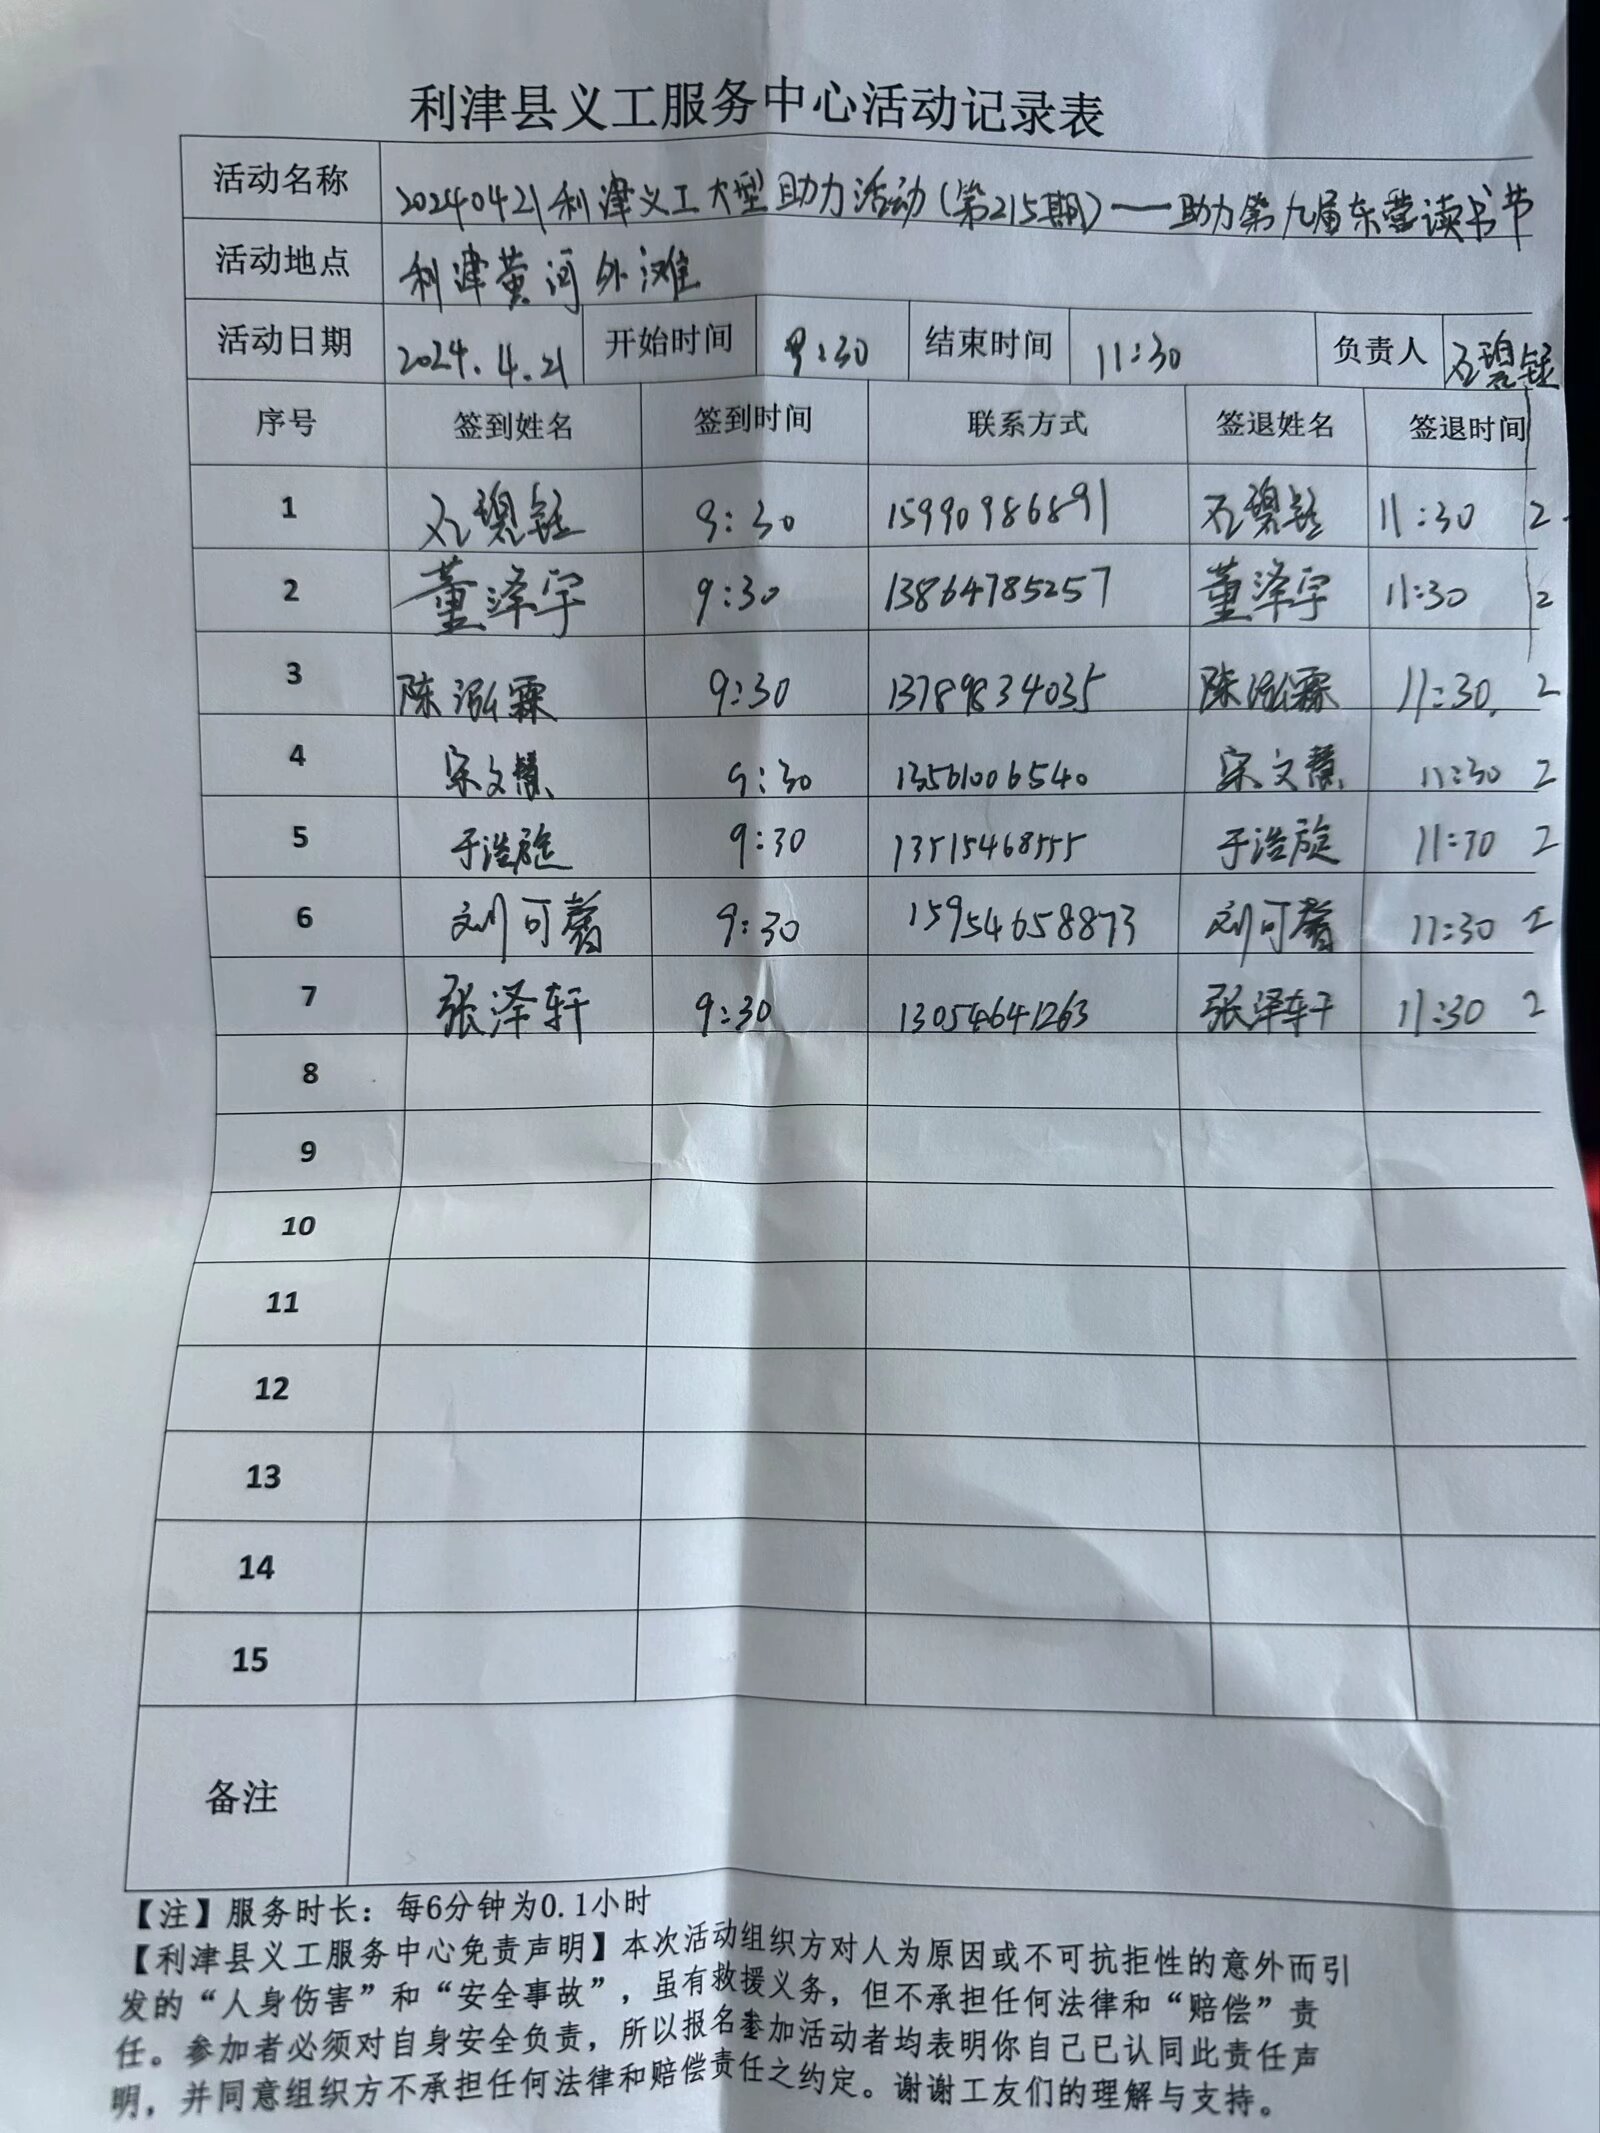 利津县义工服务中心活动记录表
活动名称 20240421利津义工大型助力活动(第215期)——助力第九届东营读书节
活动地点 利津黄河外滩
活动日期 2024.4.21 开始时间 9:30 结束时间 11:30 负责人 石碧钰
序号 签到姓名 签到时间 联系方式 签退姓名 签退时间
1 石碧钰 9:30 15990986891 石碧钰 11:30 2
2 董泽宇 9:30 13864785257 董泽宇 11:30 2
3 陈泓霖 9:30 13789834035 陈泓霖 11:30. 2
4 宋文慧 9:30 13561006540 宋文慧 11:30 2
5 于浩旋 9:30 13515468555 于浩旋 11:30 2
6 刘可馨 9:30 15954658873 刘可馨 11:30 2
7 张泽轩 9:30 13054641263 张泽轩 11:30 2
8
9
10
11
12
13
14
15
备注
【注】服务时长：每6分钟为0.1小时
【利津县义工服务中心免责声明】本次活动组织方对人为原因或不可抗拒性的意外而引
发的“人身伤害”和“安全事故”，虽有救援义务，但不承担任何法律和“赔偿”责
任。参加者必须对自身安全负责，所以报名参加活动者均表明你自己已认同此责任声
明，并同意组织方不承担任何法律和赔偿责任之约定。谢谢工友们的理解与支持。